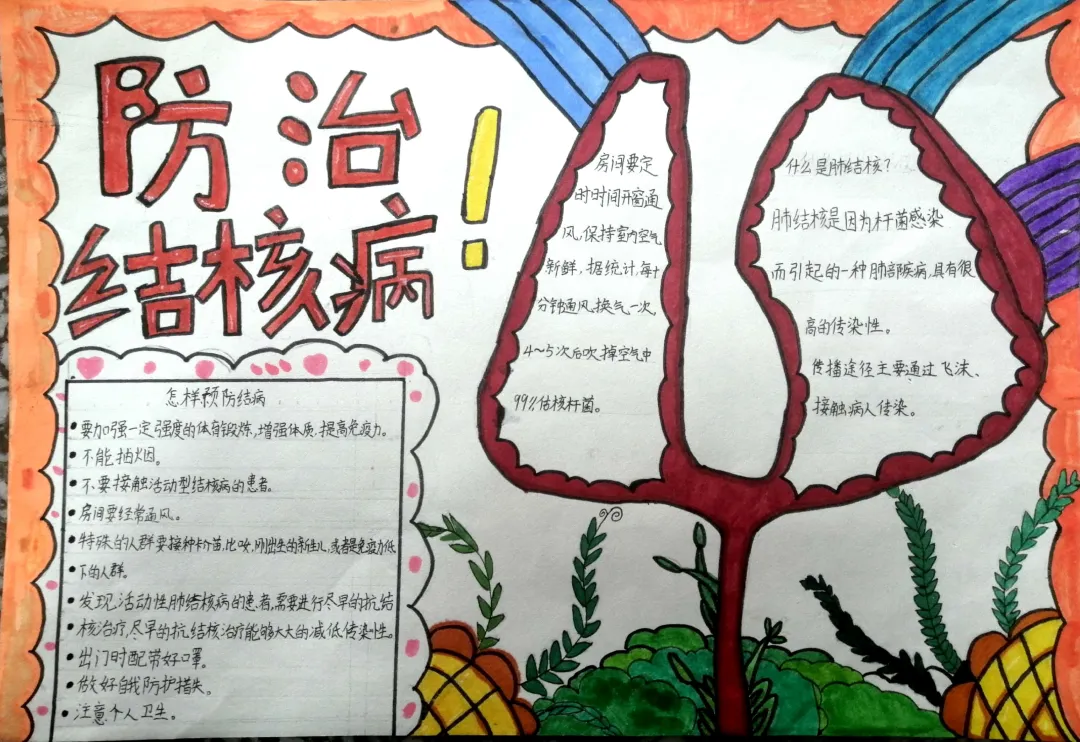 防治
结核病！
怎样预防结病
•要加强一定强度的体育锻炼，增强体质，提高免疫力。
•不能抽烟。
•不要接触活动型结核病的患者。
•房间要经常通风。
•特殊的人群要接种卡介苗，比如，刚出生的新生儿，或者是免疫力低
下的人群。
•发现活动性肺结核病的患者，需要进行尽早的抗结
•核治疗，尽早的抗结核治疗能够大大的减低传染性。
•出门时配带好口罩。
•做好自我防护措失。
•注意个人卫生。
房间要定
时时间开窗通
风，保持室内空气
新鲜，据统计，每十
分钟通风换气一次，
4～5次后吹掉空气中
99%结核杆菌。
什么是肺结核？
肺结核是因为杆菌感染
而引起的一种肺部疾病，具有很
高的传染性。
传播途径主要通过飞沫、
接触病人传染。